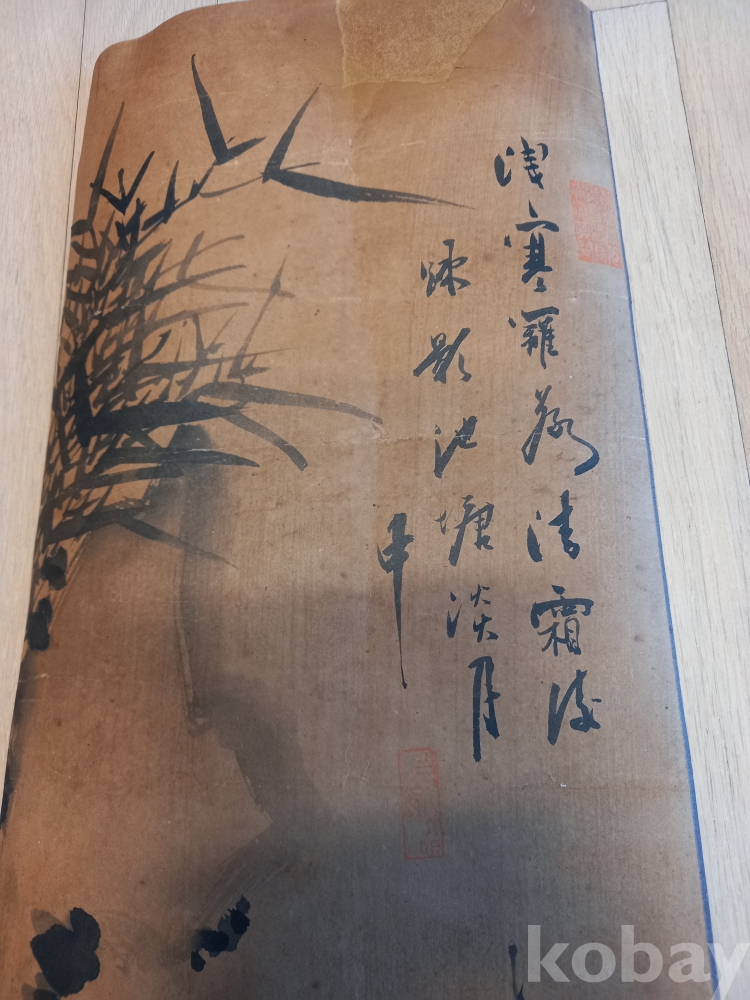 浅寒羅𫄨清霜後
疎影池塘淡月
中
kobay